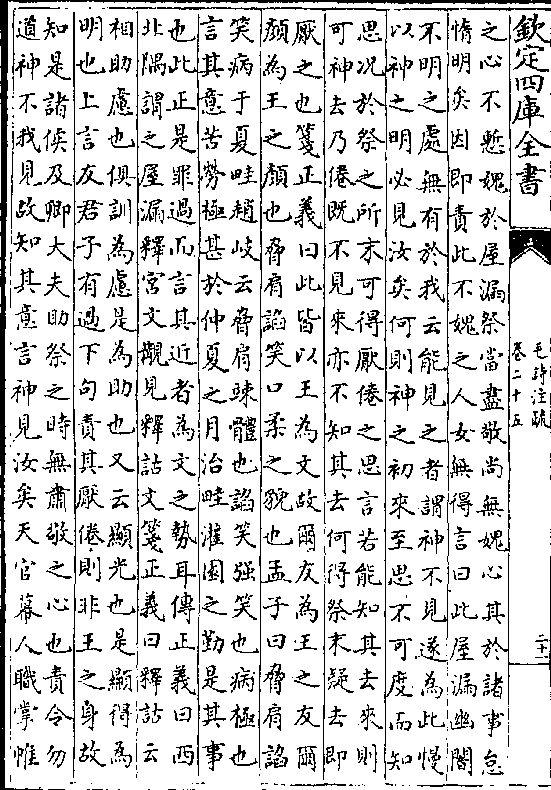 欽定四庫全書
毛詩注疏
卷二十五
二十一
之心不慙媿於屋漏祭當盡敬尚無媿心其於諸事怠
惰明矣因即責此不媿之人女無得言曰此屋漏幽闇
不明之處無有於我云能見之者謂神不見遂為此慢
以神之明必見汝矣何則神之初來至思不可度而知
思况於祭之所末可得厭倦之思言若能知其去來則
可神去乃倦既不見來亦不知其去何得祭末疑去即
厭之也箋正義曰此皆以王為文故爾友為王之友爾
顔為王之顔也脅肩謟笑口柔之貌也孟子曰脅肩謟
笑病于夏畦趙岐云脅肩竦體也謟笑强笑也病極也
言其意苦勞極甚於仲夏之月治畦灌園之勤是其事
也此正是罪過而言其近者為文之勢耳傳正義曰西
北隅謂之屋漏釋宮文觀見釋詁文箋正義曰釋詁云
相助慮也俱訓為慮是為助也又云顯光也是顯得為
明也上言友君子有過下句責其厭倦則非王之身故
知是諸侯及卿大夫助祭之時無肅敬之心也責令勿
道神不我見故知其意言神見汝矣天官幕人職掌帷